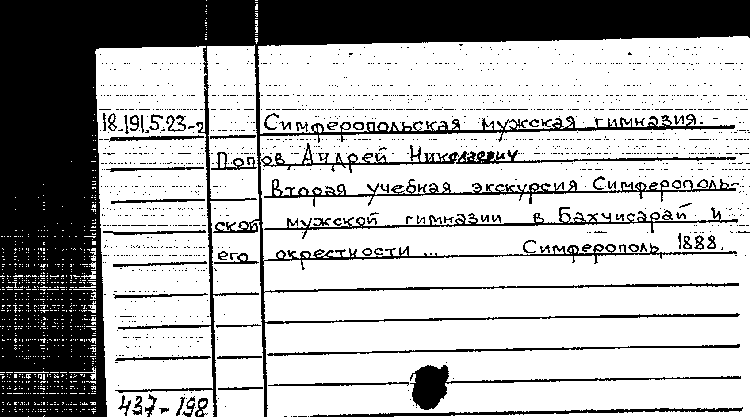 18.191.5.23-2 Симферопольская мужская гимназия.
Попов, Андрей Николаевич
Вторая учебная экскурсия Симферополь-
ской мужской гимназии в Бахчисарай и
его окрестности ... Симферополь, 1888.
437-198